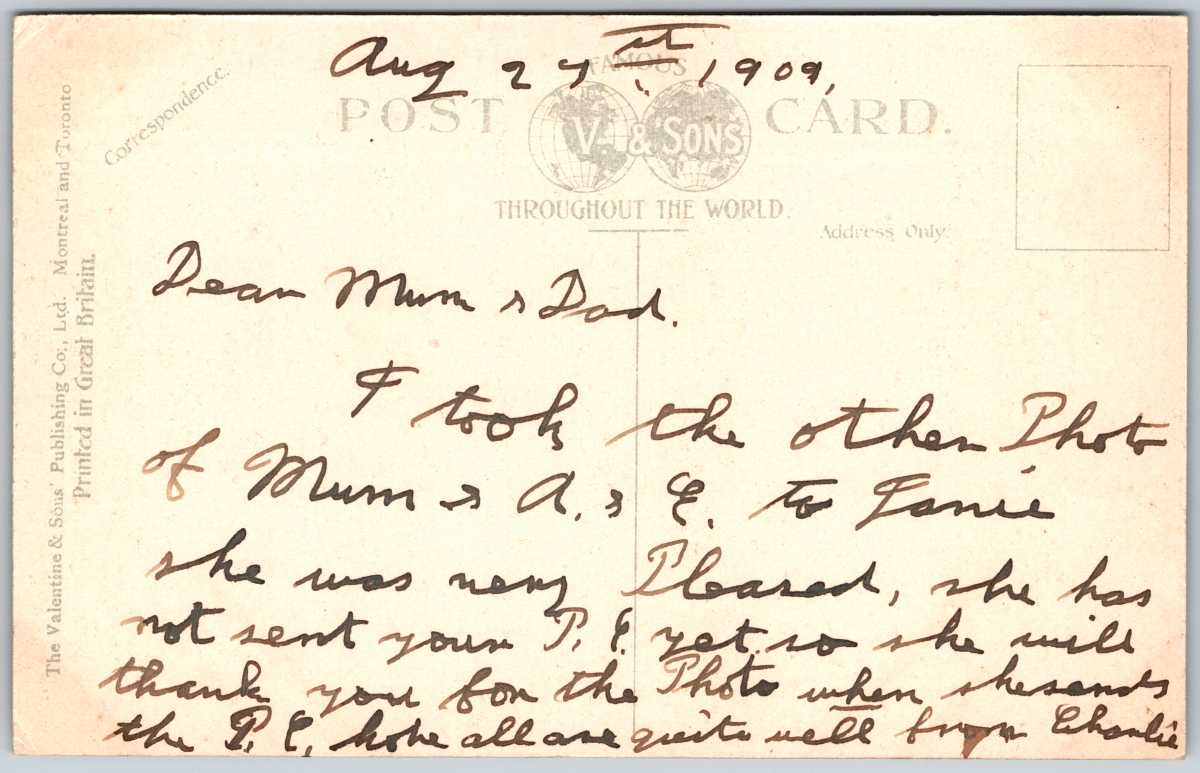 Aug 27st 1909,
FAMOUS
POST CARD.
V. & SONS
THROUGHOUT THE WORLD.
Correspondence.
Address Only.
The Valentine & Sons' Publishing Co., Ltd. Montreal and Toronto
Printed in Great Britain.
Dear Mum & Dad.
I took the other Photo
of Mum & A. & E. to Janie
she was very Pleased, she has
not sent your P.C. yet so she will
thank you for the Photo when she sends
the P.C, hope all are quite well from Charlie